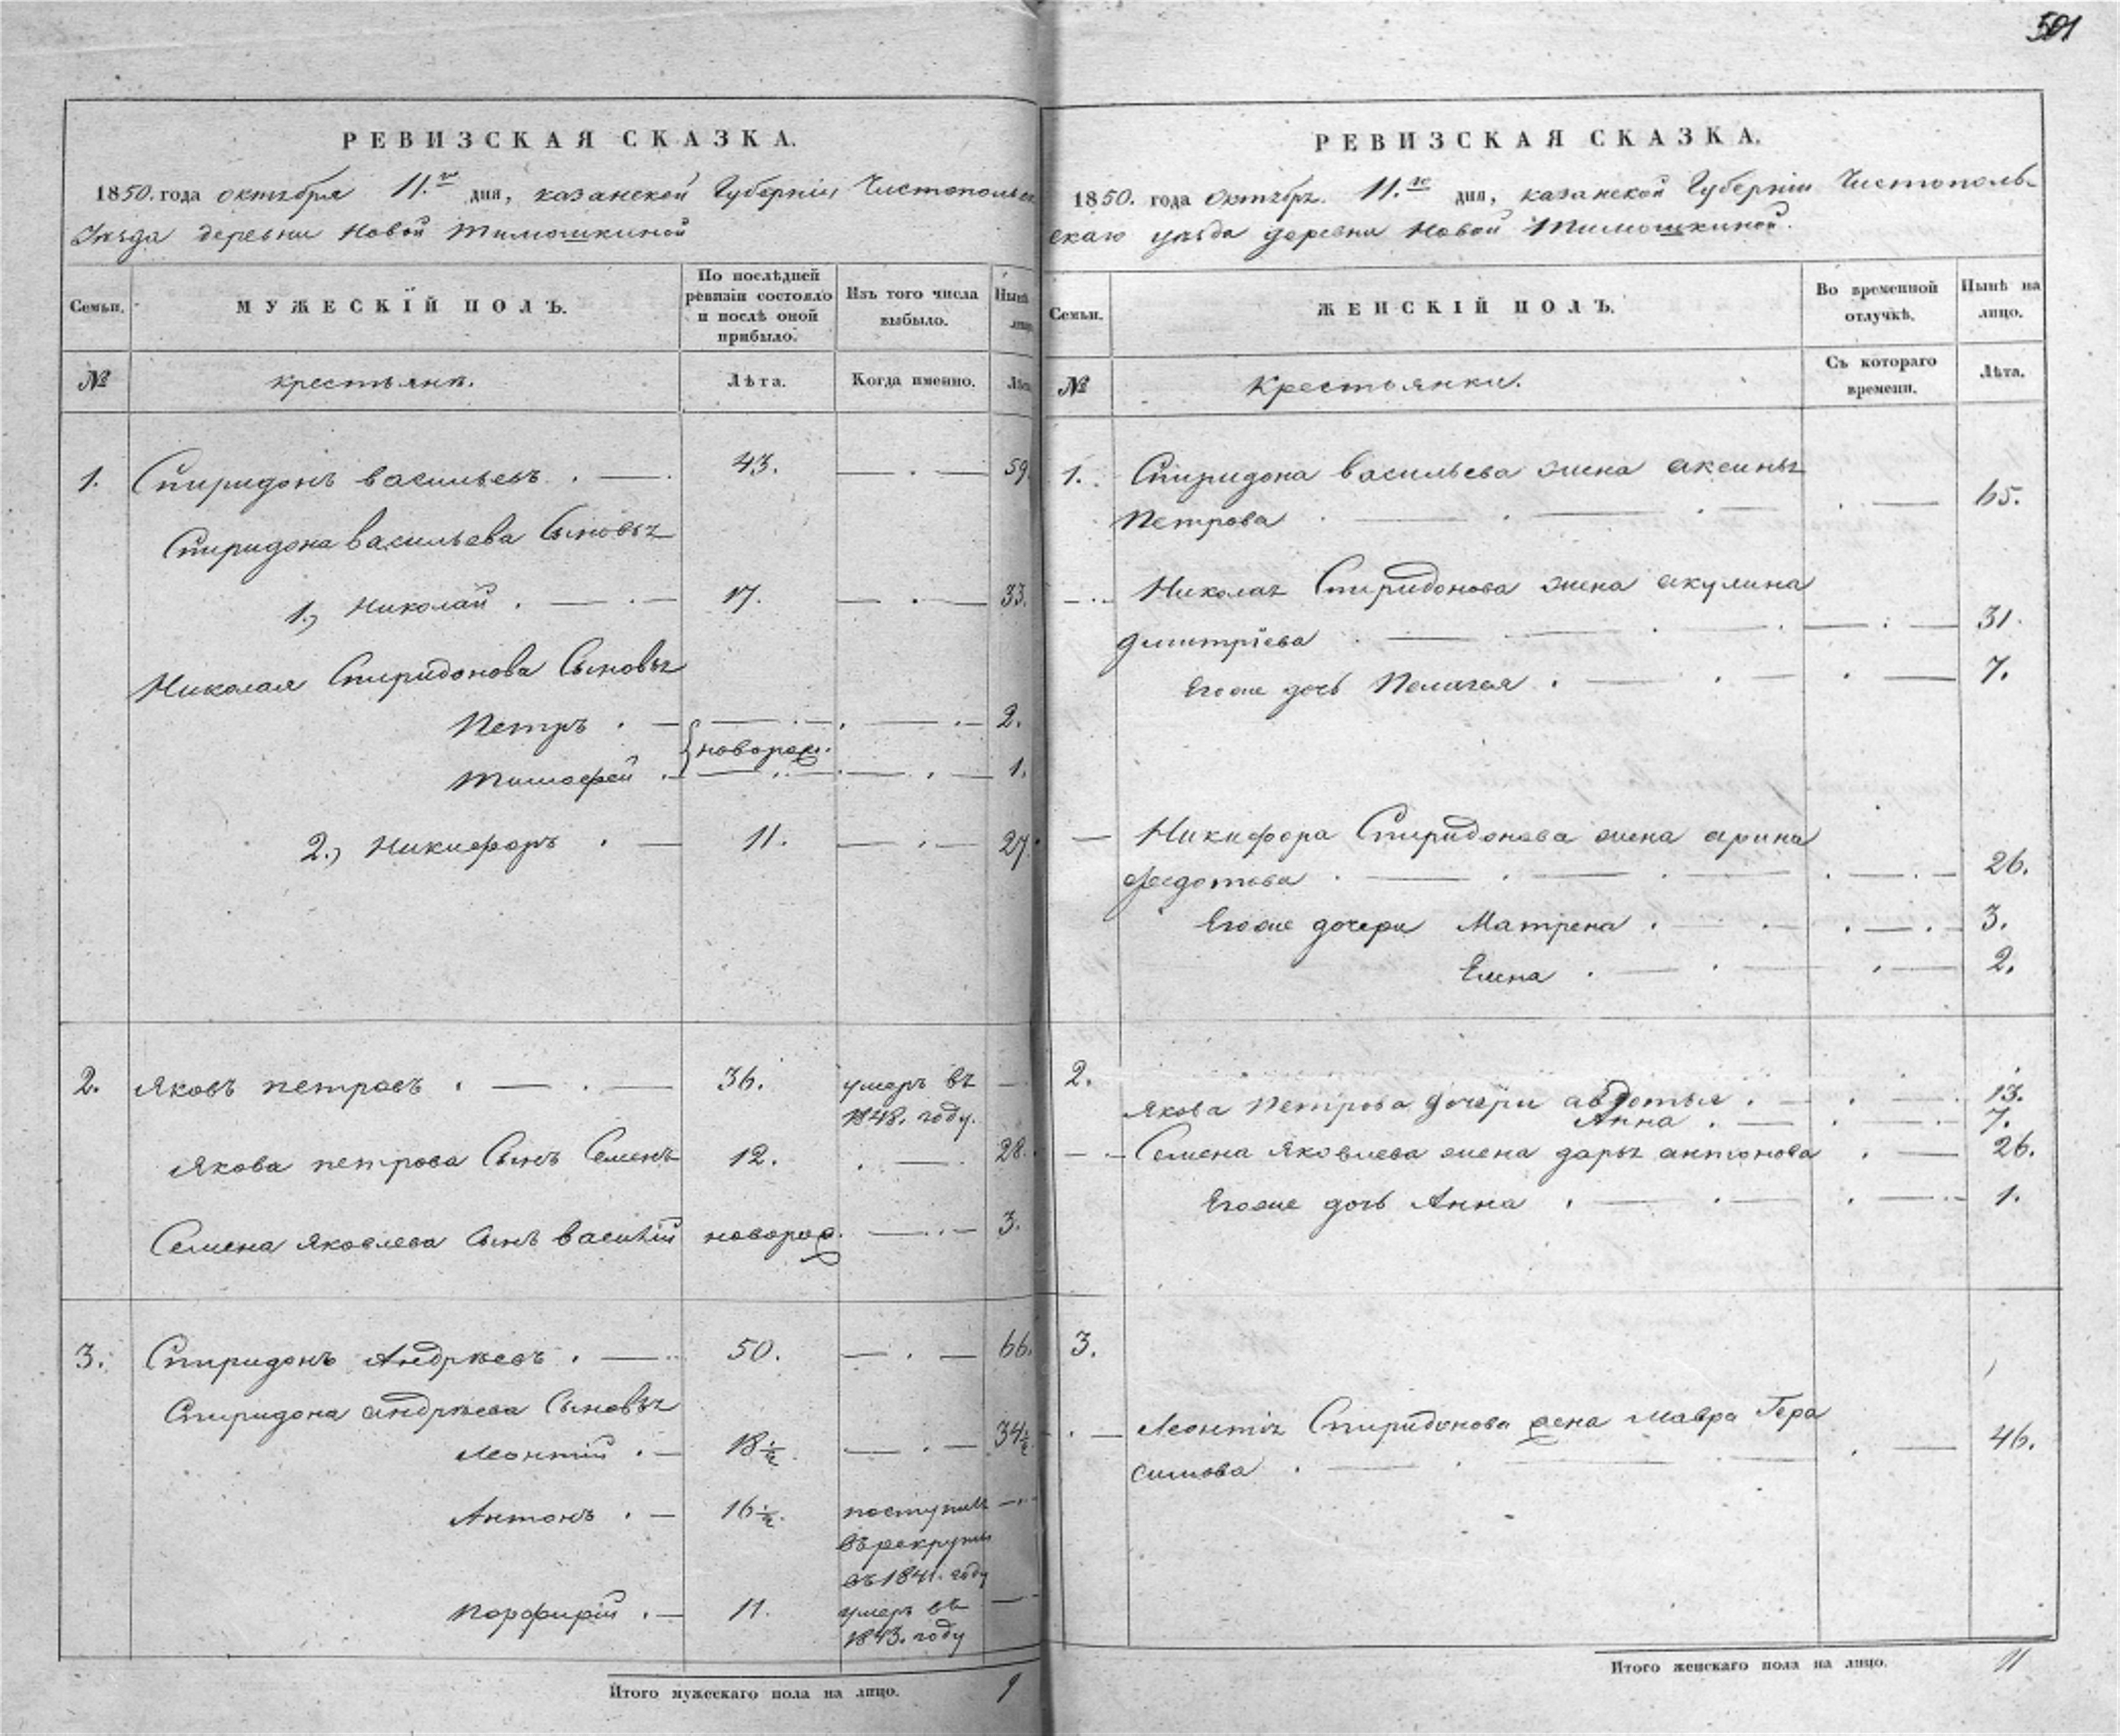 501
РЕВИЗСКАЯ СКАЗКА.
1850. года октября 11.го дня, казанской Губерніи Чистопольс
Уѣзда деревни Новой Тимошкиной
Семьи.
МУЖЕСКІЙ ПОЛЪ.
По послѣдней ревизіи состояло и послѣ оной прибыло.
Изъ того числа выбыло.
Нынѣ лицо
№
крестьяне.
Лѣта.
Когда именно.
Лѣта
1. Спиридонъ васильевъ . — . 43. — . — 59
Спиридона васильева Сыновья
1., Николай . — . — 17. — . — 33.
Николая Спиридонова Сыновья
Петръ . — . — 2.
новорож.
Тимофей . — . — 1.
2., Никифоръ . — 11. — . — 27.
2. Яковъ петровъ . — . — 36. умеръ въ —
1848. году.
Якова петрова Сынъ Семенъ 12. . — . 28.
Семена Яковлева Сынъ василій новорож. — . — 3.
3. Спиридонъ Андрѣевъ . — 50. — . — 66.
Спиридона андрѣева Сыновья
Леонтій . — 18½. — . — 34½
Антонъ . — 16½. поступилъ —
въ рекруты
въ 1841. году
Порфирій . — 11. умеръ въ —
1843. году
Итого мужескаго пола на лицо. 9
РЕВИЗСКАЯ СКАЗКА.
1850. года Октябр. 11.го дня, казанской Губерніи Чистополь-
скаго уѣзда деревни Новой Тимошкиной.
Семьи.
ЖЕНСКІЙ ПОЛЪ.
Во временной отлучкѣ.
Нынѣ на лицо.
№
Крестьянки.
Съ котораго времени.
Лѣта.
1. Спиридона васильева жена аксинья
Петрова . — . — . — 65.
— Николая Спиридонова жена акулина
дмитріева . — . — 31.
Егоже дочь Пелагея . — . — 7.
— Никифора Спиридонова жена арина
федотова . — . — . — 26.
Егоже дочери Матрена . — . — 3.
Елена . — . — 2.
2.
Якова Петрова дочери авдотья . — 13.
Анна . — 7.
— Семена Яковлева жена дарья антонова . — 26.
Егоже дочь Анна . — . — 1.
3.
— Леонтія Спиридонова жена мавра Гера
симова . — . — 46.
Итого женскаго пола на лицо. 11